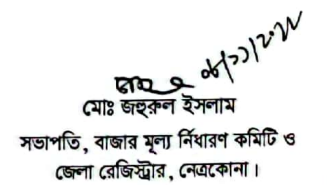 ০৮/১১/২০২২
মোঃ জহুরুল ইসলাম
সভাপতি, বাজার মূল্য নির্ধারণ কমিটি ও
জেলা রেজিস্ট্রার, নেত্রকোনা।